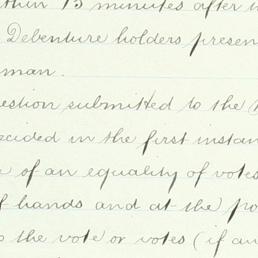 15 minutes after
Debenture holders presen
man.
estion submitted to the
cided in the first instan
of an equality of votes
f hands and at the po
the vote or votes (if an